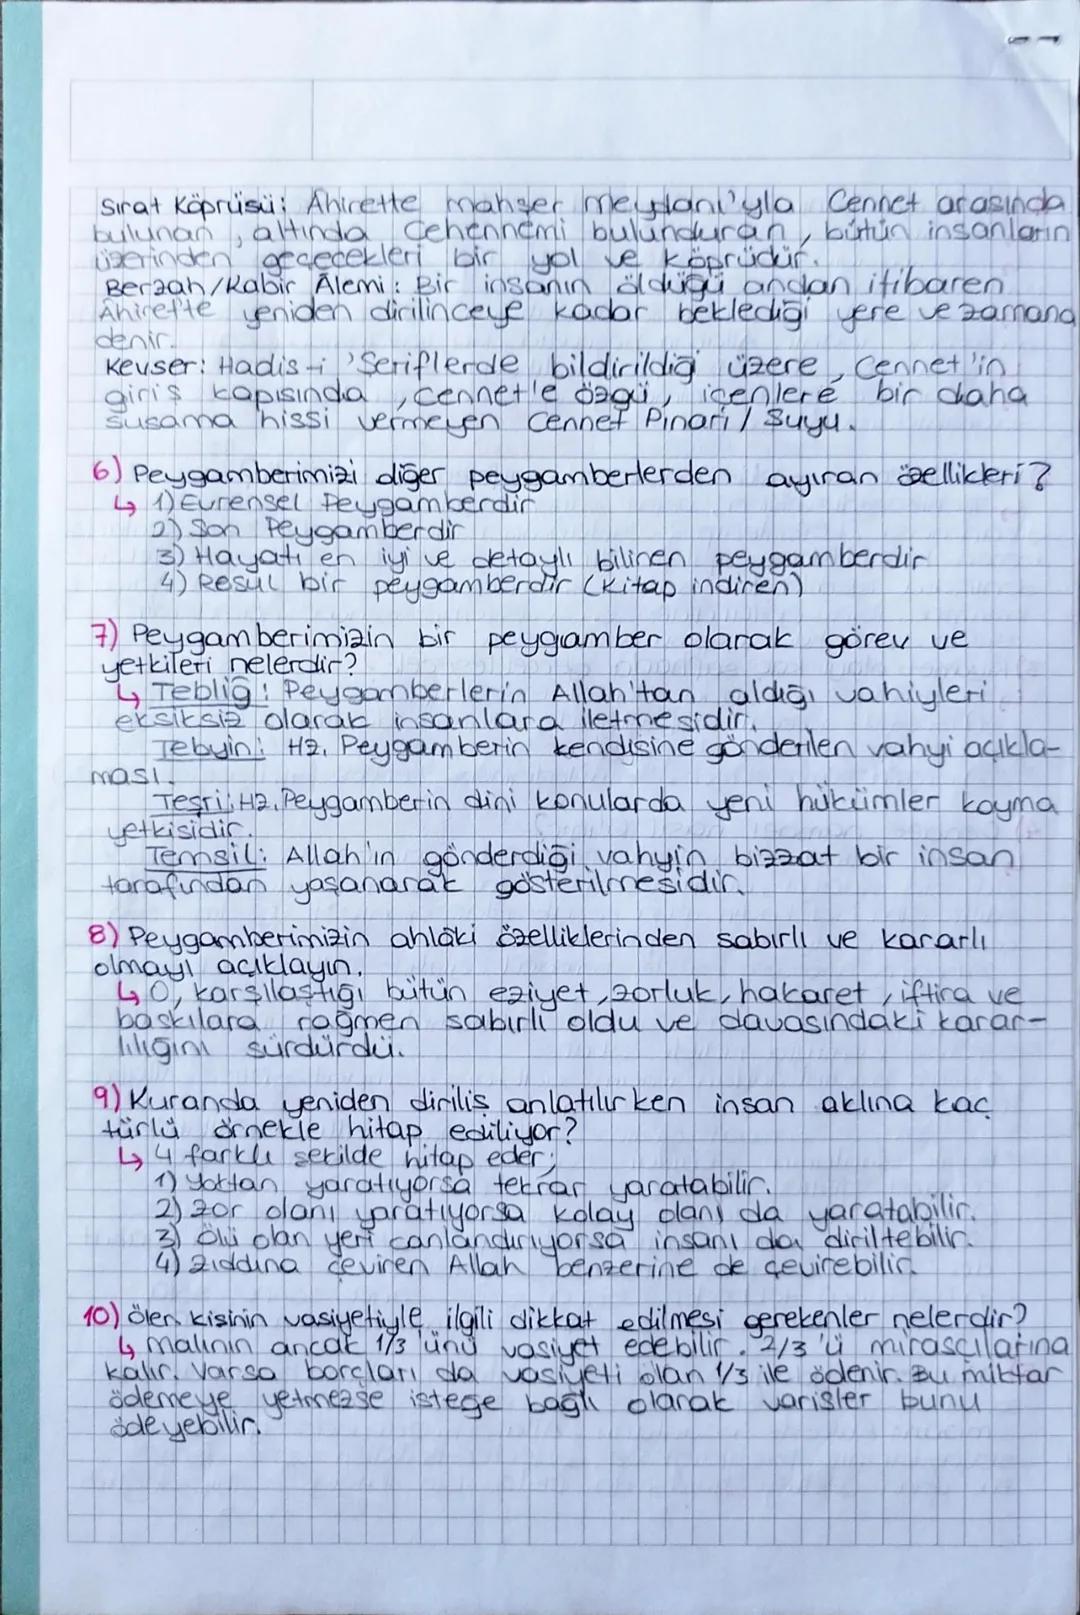 Sırat Köprüsü: Ahirette mahşer meydanı'yla Cennet arasında
bulunan, altında Cehennemi bulunduran, bütün insanların
üzerinden geçecekleri bir yol ve köprüdür.
Berzah/Kabir Âlemi: Bir insanın öldüğü andan itibaren
Ahirette yeniden dirilinceye kadar beklediği yere ve zamana
denir.
Kevser: Hadis-i Şeriflerde bildirildiği üzere, Cennet'in
giriş kapısında, cennet'e özgü, içenlere bir daha
susama hissi vermeyen Cennet Pınarı / Suyu.
6) Peygamberimizi diğer peygamberlerden ayıran özellikleri?
↳ 1) Evrensel Peygamberdir
2) Son Peygamberdir
3) Hayatı en iyi ve detaylı bilinen peygamberdir
4) Resul bir peygamberdir (Kitap indiren)
7) Peygamberimizin bir peygamber olarak görev ve
yetkileri nelerdir?
↳ Tebliğ: Peygamberlerin Allah'tan aldığı vahiyleri
eksiksiz olarak insanlara iletmesidir.
Tebyin: Hz. Peygamberin kendisine gönderilen vahyi açıkla-
ması.
Teşri: Hz. Peygamberin dini konularda yeni hükümler koyma
yetkisidir.
Temsil: Allah'ın gönderdiği vahyin bizzat bir insan
tarafından yaşanarak gösterilmesidir.
8) Peygamberimizin ahlâki özelliklerinden sabırlı ve kararlı
olmayı açıklayın.
↳ O, karşılaştığı bütün eziyet, zorluk, hakaret, iftira ve
baskılara rağmen sabırlı oldu ve davasındaki karar-
lılığını sürdürdü.
9) Kuranda yeniden diriliş anlatılırken insan aklına kaç
türlü örnekle hitap ediliyor?
↳ 4 farklı şekilde hitap eder;
1) Yoktan yaratıyorsa tekrar yaratabilir.
2) Zor olanı yaratıyorsa kolay olanı da yaratabilir.
3) Ölü olan yeri canlandırıyorsa insanı da diriltebilir.
4) Zıddına çeviren Allah benzerine de çevirebilir.
10) Ölen kişinin vasiyetiyle ilgili dikkat edilmesi gerekenler nelerdir?
↳ Malının ancak 1/3'ünü vasiyet edebilir. 2/3'ü mirasçılarına
kalır. Varsa borçları da vasiyeti olan 1/3 ile ödenir. Bu miktar
ödemeye yetmezse isteğe bağlı olarak varisler bunu
ödeyebilir.